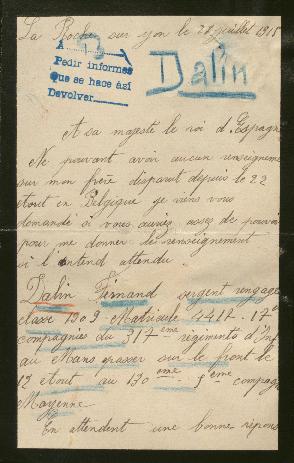 La Roche sur yon le 28 juillet 1915
A
Pedir informes
Que se hace así
Devolver
Dalin
A sa majesté le roi d'Espagne
Ne pouvant avoir aucun renseigneme
sur mon frère disparut depuis le 22
àout en Belgique je viens vous
demandé si vous auriez assez de pouvoir
pour me donner de renseignement
si l'entend attendu.
Dalin Fernand sergent rengagé
classe 1909 Matricule 4417. 17e
compagnies du 317ème régiments d'Inf
au Mans passer sur le front le
12 àout au 130ème 5ème compag
Mayenne
En attendent une bonne repons